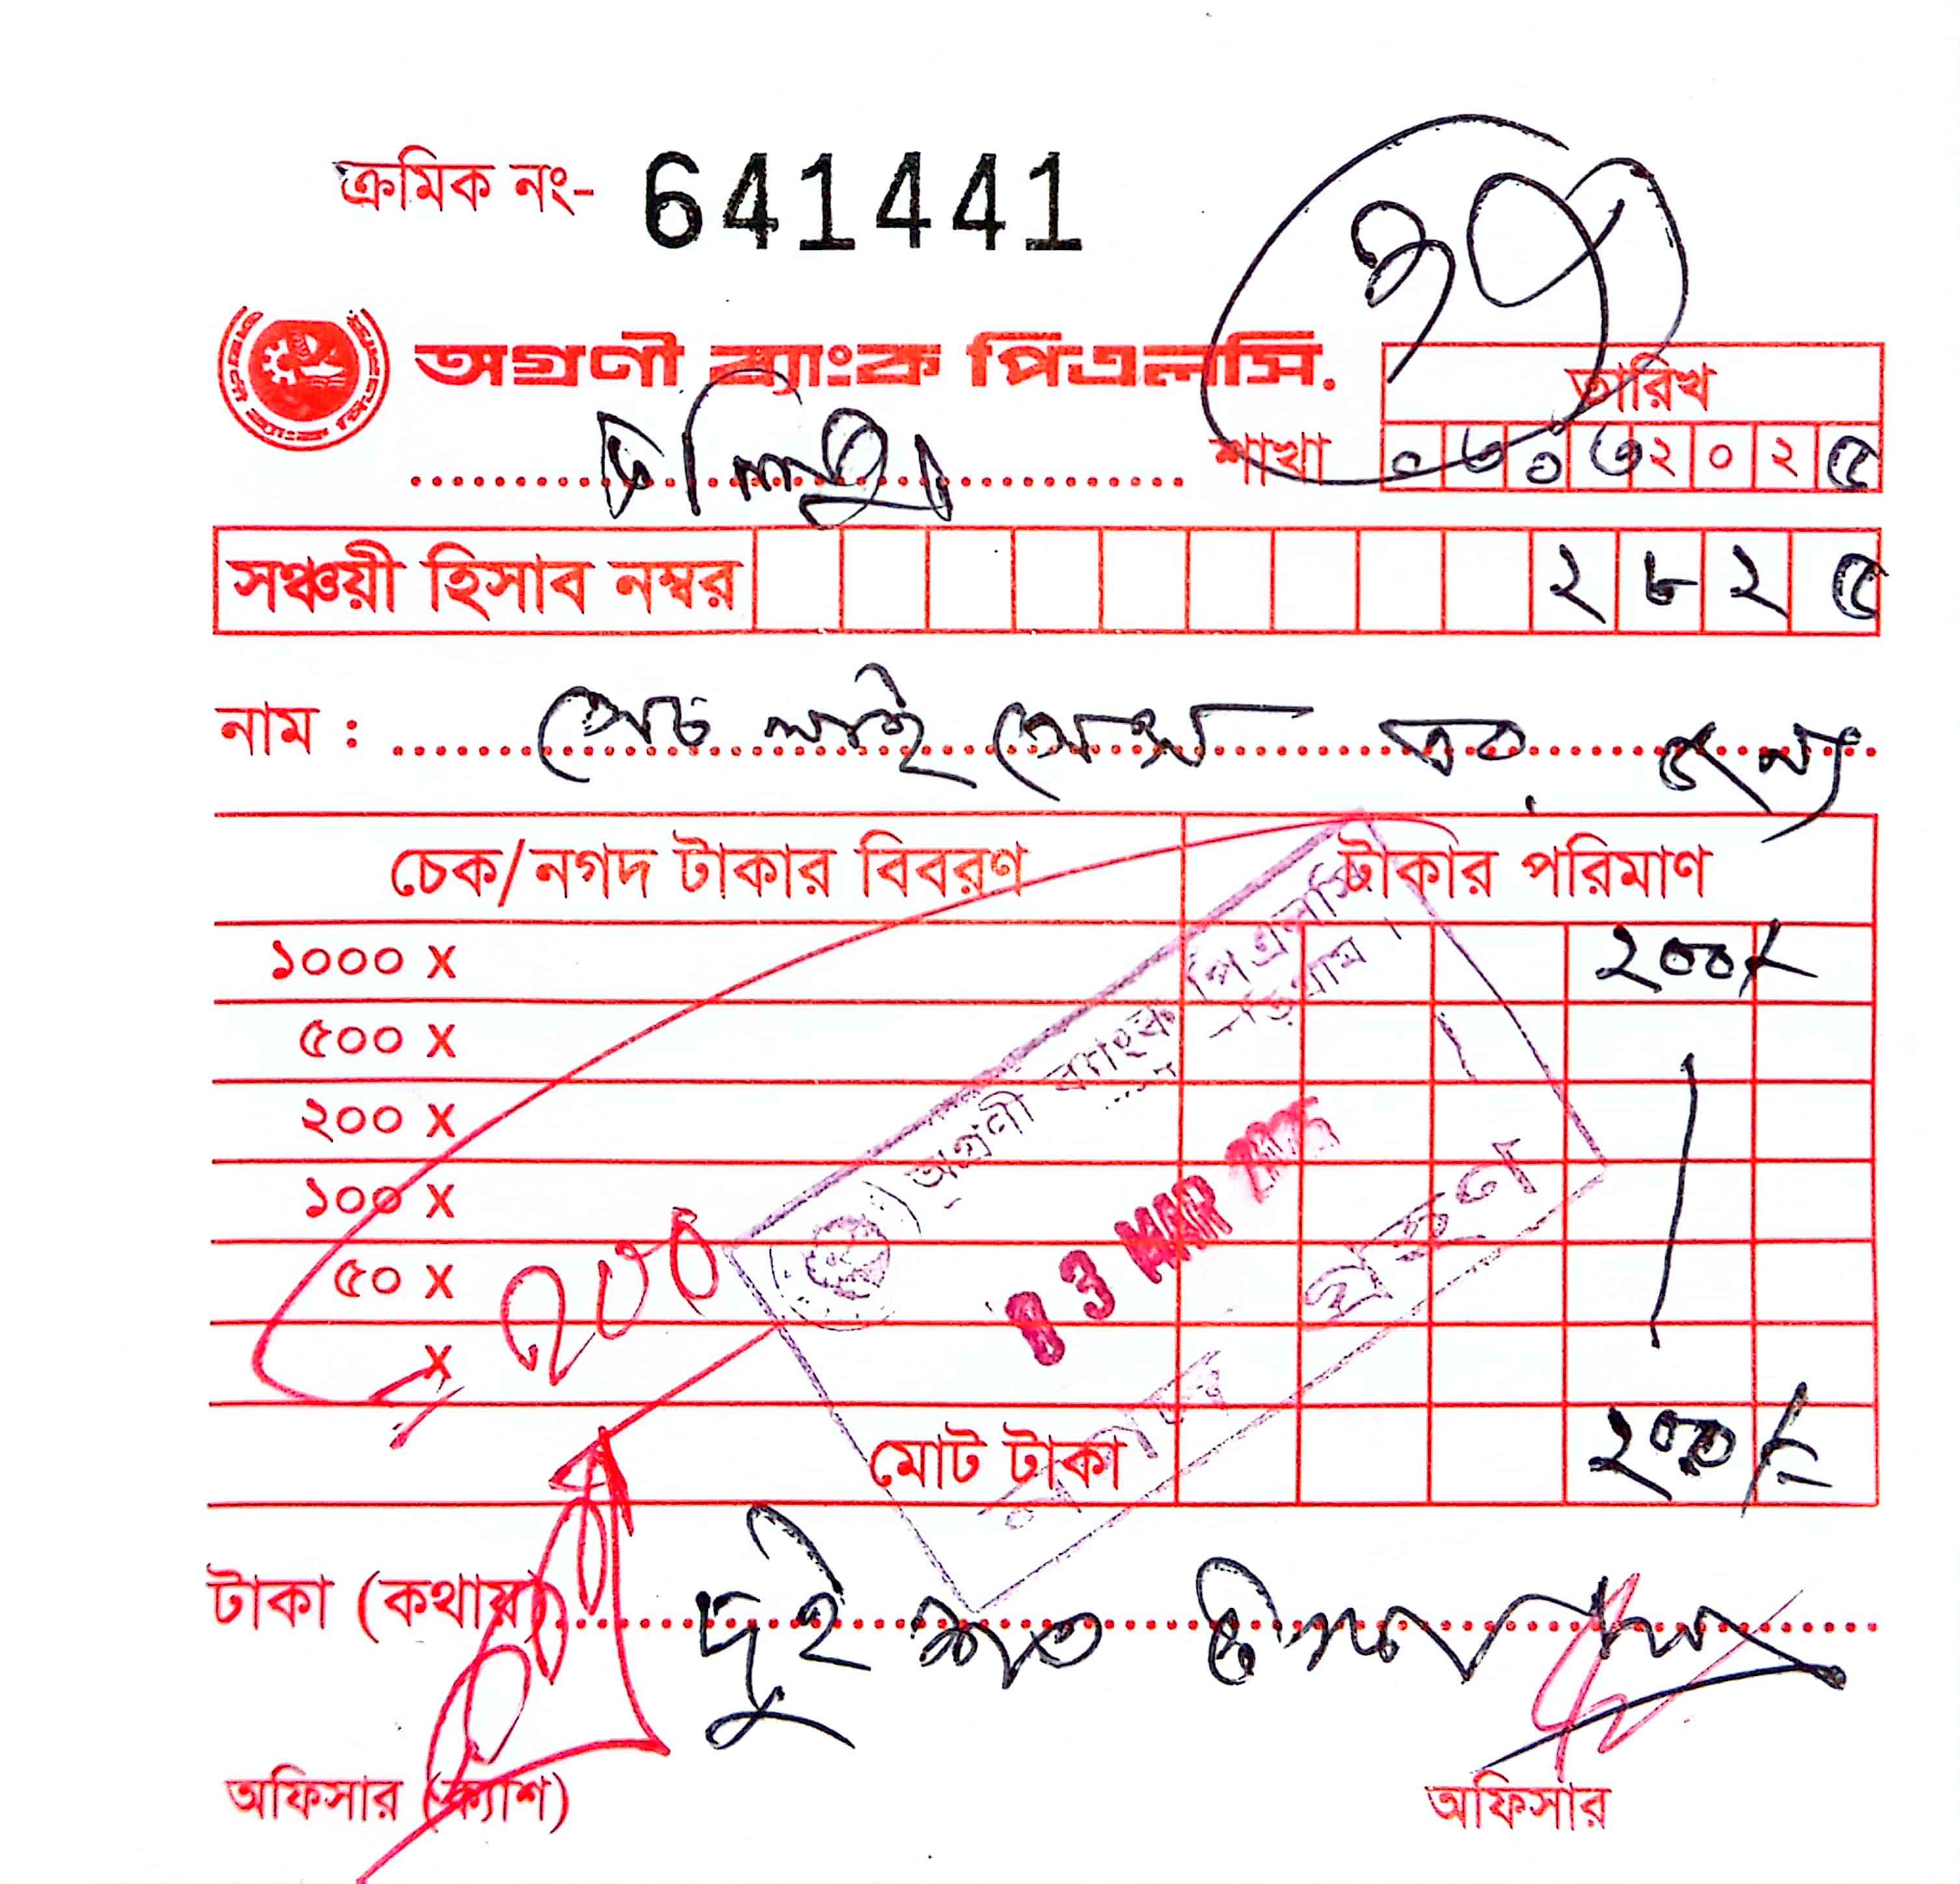 ক্রমিক নং- 641441
অগ্রণী ব্যাংক পিএলসি.
শাখা
তারিখ
০৩০৩২০২৫
সঞ্চয়ী হিসাব নম্বর ২৮২৫
নাম :
চেক/নগদ টাকার বিবরণ টাকার পরিমাণ
১০০০ X ২০০/-
৫০০ X
২০০ X
১০০ X
৫০ X
X
মোট টাকা ২০০/-
অগ্রণী ব্যাংক পিএলসি
03 MAR 2025
গ্রহণ
টাকা (কথায়) দুই শত
অফিসার (ক্যাশ) অফিসার